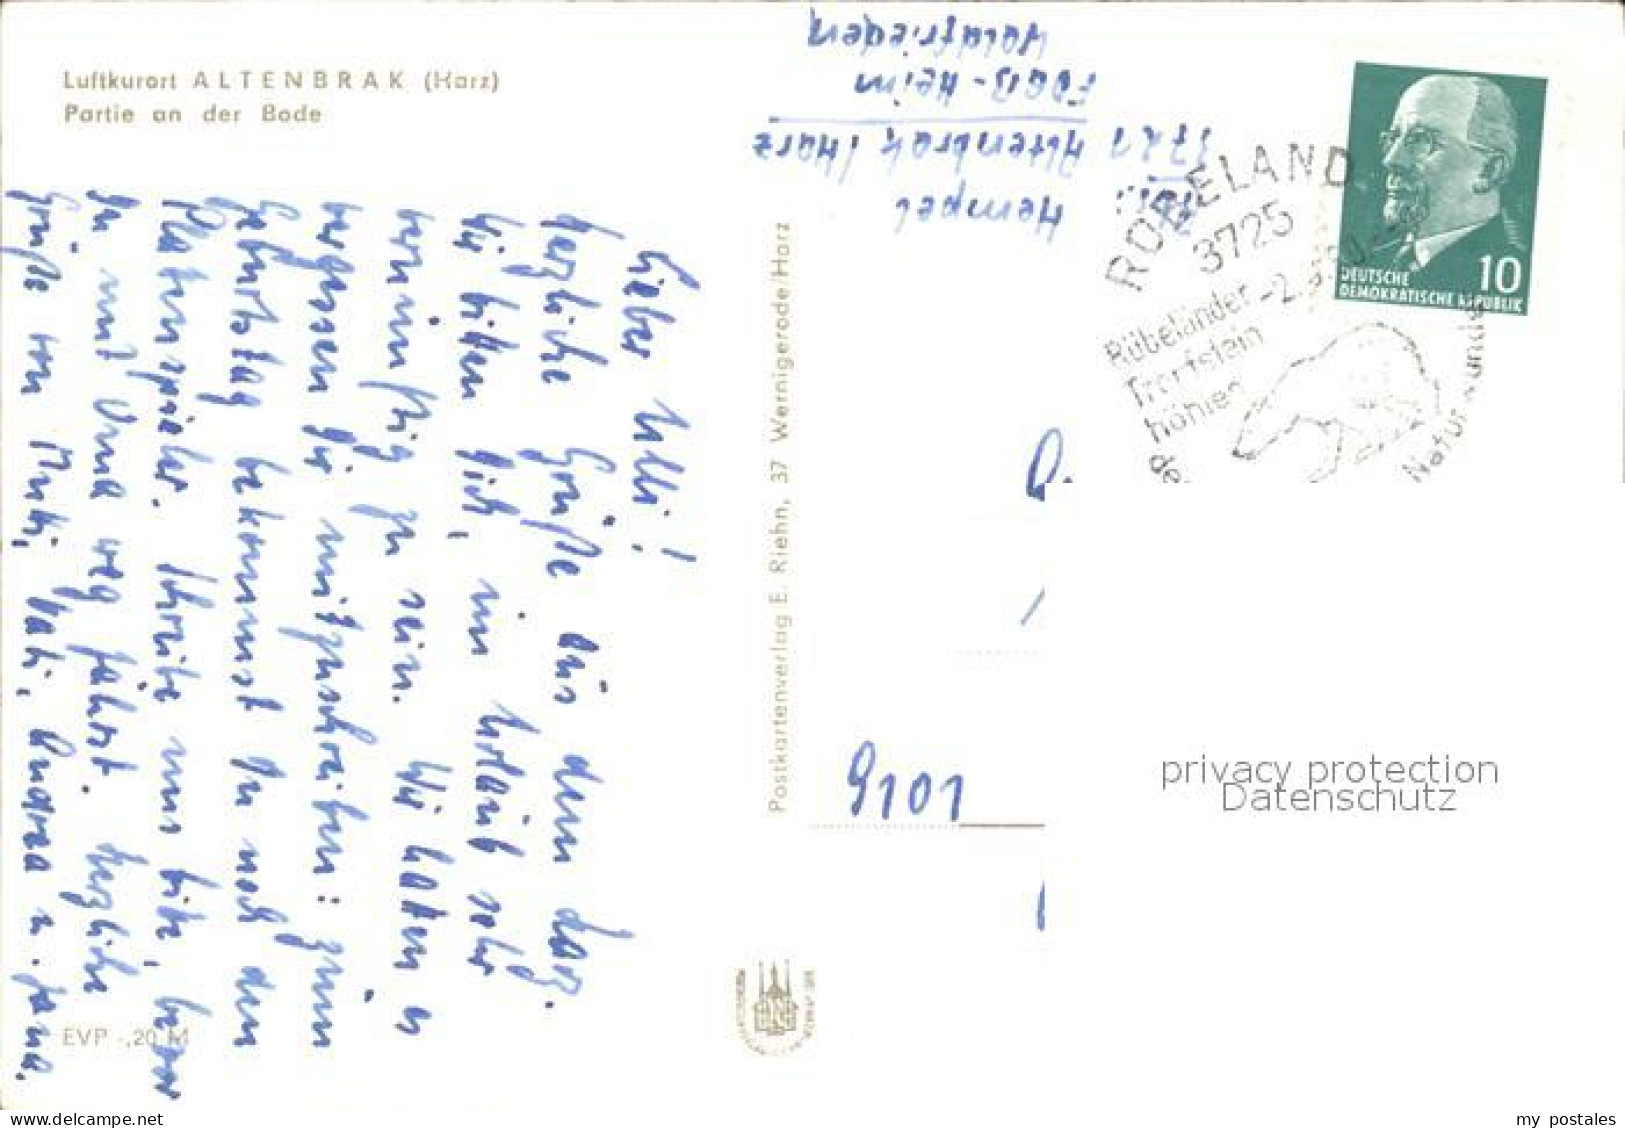 Luftkurort ALTENBRAK (Harz)
Partie an der Bode
Lieber Ulli!
Herzliche Grüße aus dem Harz.
Wir bitten Dich, im Urlaub sehr
vernünftig zu sein. Wir hatten
vergessen Dir mitzuschreiben: zum
Geburtstag bekommst Du noch den
Plattenspieler. Schreibe uns bitte, bevor
Du mit Oma weg fährst. Herzliche
Grüße von Mutti, Vati, u. Jana.
EVP -,20 M
Postkartenverlag E. Riehn, 37 Wernigerode/Harz
Hempel
3721 Altenbrak/Harz
FDGB-Heim
Waldfrieden
RÜBELAND
3725
Rübeländer
Tropfstein
höhlen
Natur
DEUTSCHE
DEMOKRATISCHE REPUBLIK
10
9101
privacy protection
Datenschutz
www.delcampe.net
my_postales